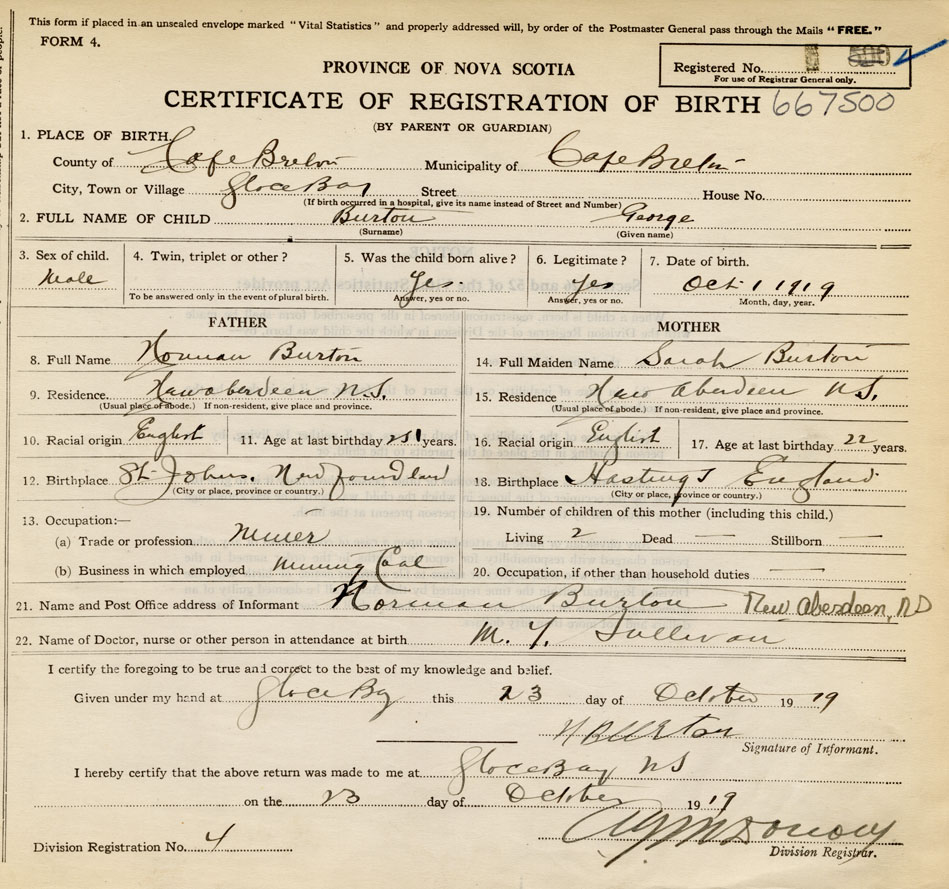 This form if placed in an unsealed envelope marked "Vital Statistics" and properly addressed will, by order of the Postmaster General pass through the Mails "FREE."
FORM 4.
Registered No. 500
For use of Registrar General only.
PROVINCE OF NOVA SCOTIA
CERTIFICATE OF REGISTRATION OF BIRTH 667500
(BY PARENT OR GUARDIAN)
1. PLACE OF BIRTH
County of Cape Breton Municipality of Cape Breton
City, Town or Village Glace Bay Street House No.
(If birth occurred in a hospital, give its name instead of Street and Number)
2. FULL NAME OF CHILD Burton George
(Surname) (Given name)
3. Sex of child. 4. Twin, triplet or other? 5. Was the child born alive? 6. Legitimate? 7. Date of birth.
Male Yes. Yes Oct 1 1919
To be answered only in the event of plural birth. Answer, yes or no. Answer, yes or no. Month, day, year.
FATHER
8. Full Name Norman Burton
9. Residence. New Aberdeen N.S.
(Usual place of abode.) If non-resident, give place and province.
10. Racial origin English 11. Age at last birthday 25 years.
12. Birthplace St. Johns. Newfoundland
(City or place, province or country.)
13. Occupation:—
(a) Trade or profession. Miner
(b) Business in which employed Mining Coal
MOTHER
14. Full Maiden Name Sarah Burton
15. Residence New Aberdeen N.S.
(Usual place of abode.) If non-resident, give place and province.
16. Racial origin English 17. Age at last birthday 22 years.
18. Birthplace Hastings England
(City or place, province or country.)
19. Number of children of this mother (including this child.)
Living 2 Dead — Stillborn —
20. Occupation, if other than household duties —
21. Name and Post Office address of Informant Norman Burton New Aberdeen, NS
22. Name of Doctor, nurse or other person in attendance at birth M. T. Sullivan
I certify the foregoing to be true and correct to the best of my knowledge and belief.
Given under my hand at Glace Bay this 23 day of October 19 19
N Burton
Signature of Informant.
I hereby certify that the above return was made to me at Glace Bay NS
on the 23 day of October 19 19
Division Registration No. 4
Division Registrar.